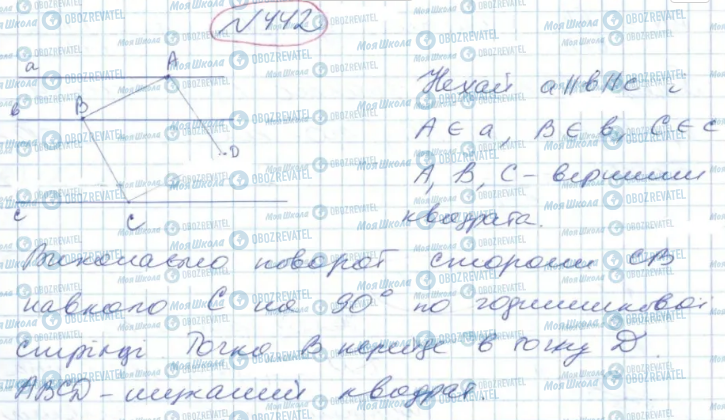 №442
a A
Нехай a∥b∥c і
в B
A ∈ a, B ∈ b, C ∈ c
D
A, B, C – вершини
c C
квадрата.
Виконаємо поворот сторони CB
навколо C на 90° по годинниковой
стрілці. Точка B перейде в точку D.
ABCD – шуканий квадрат.